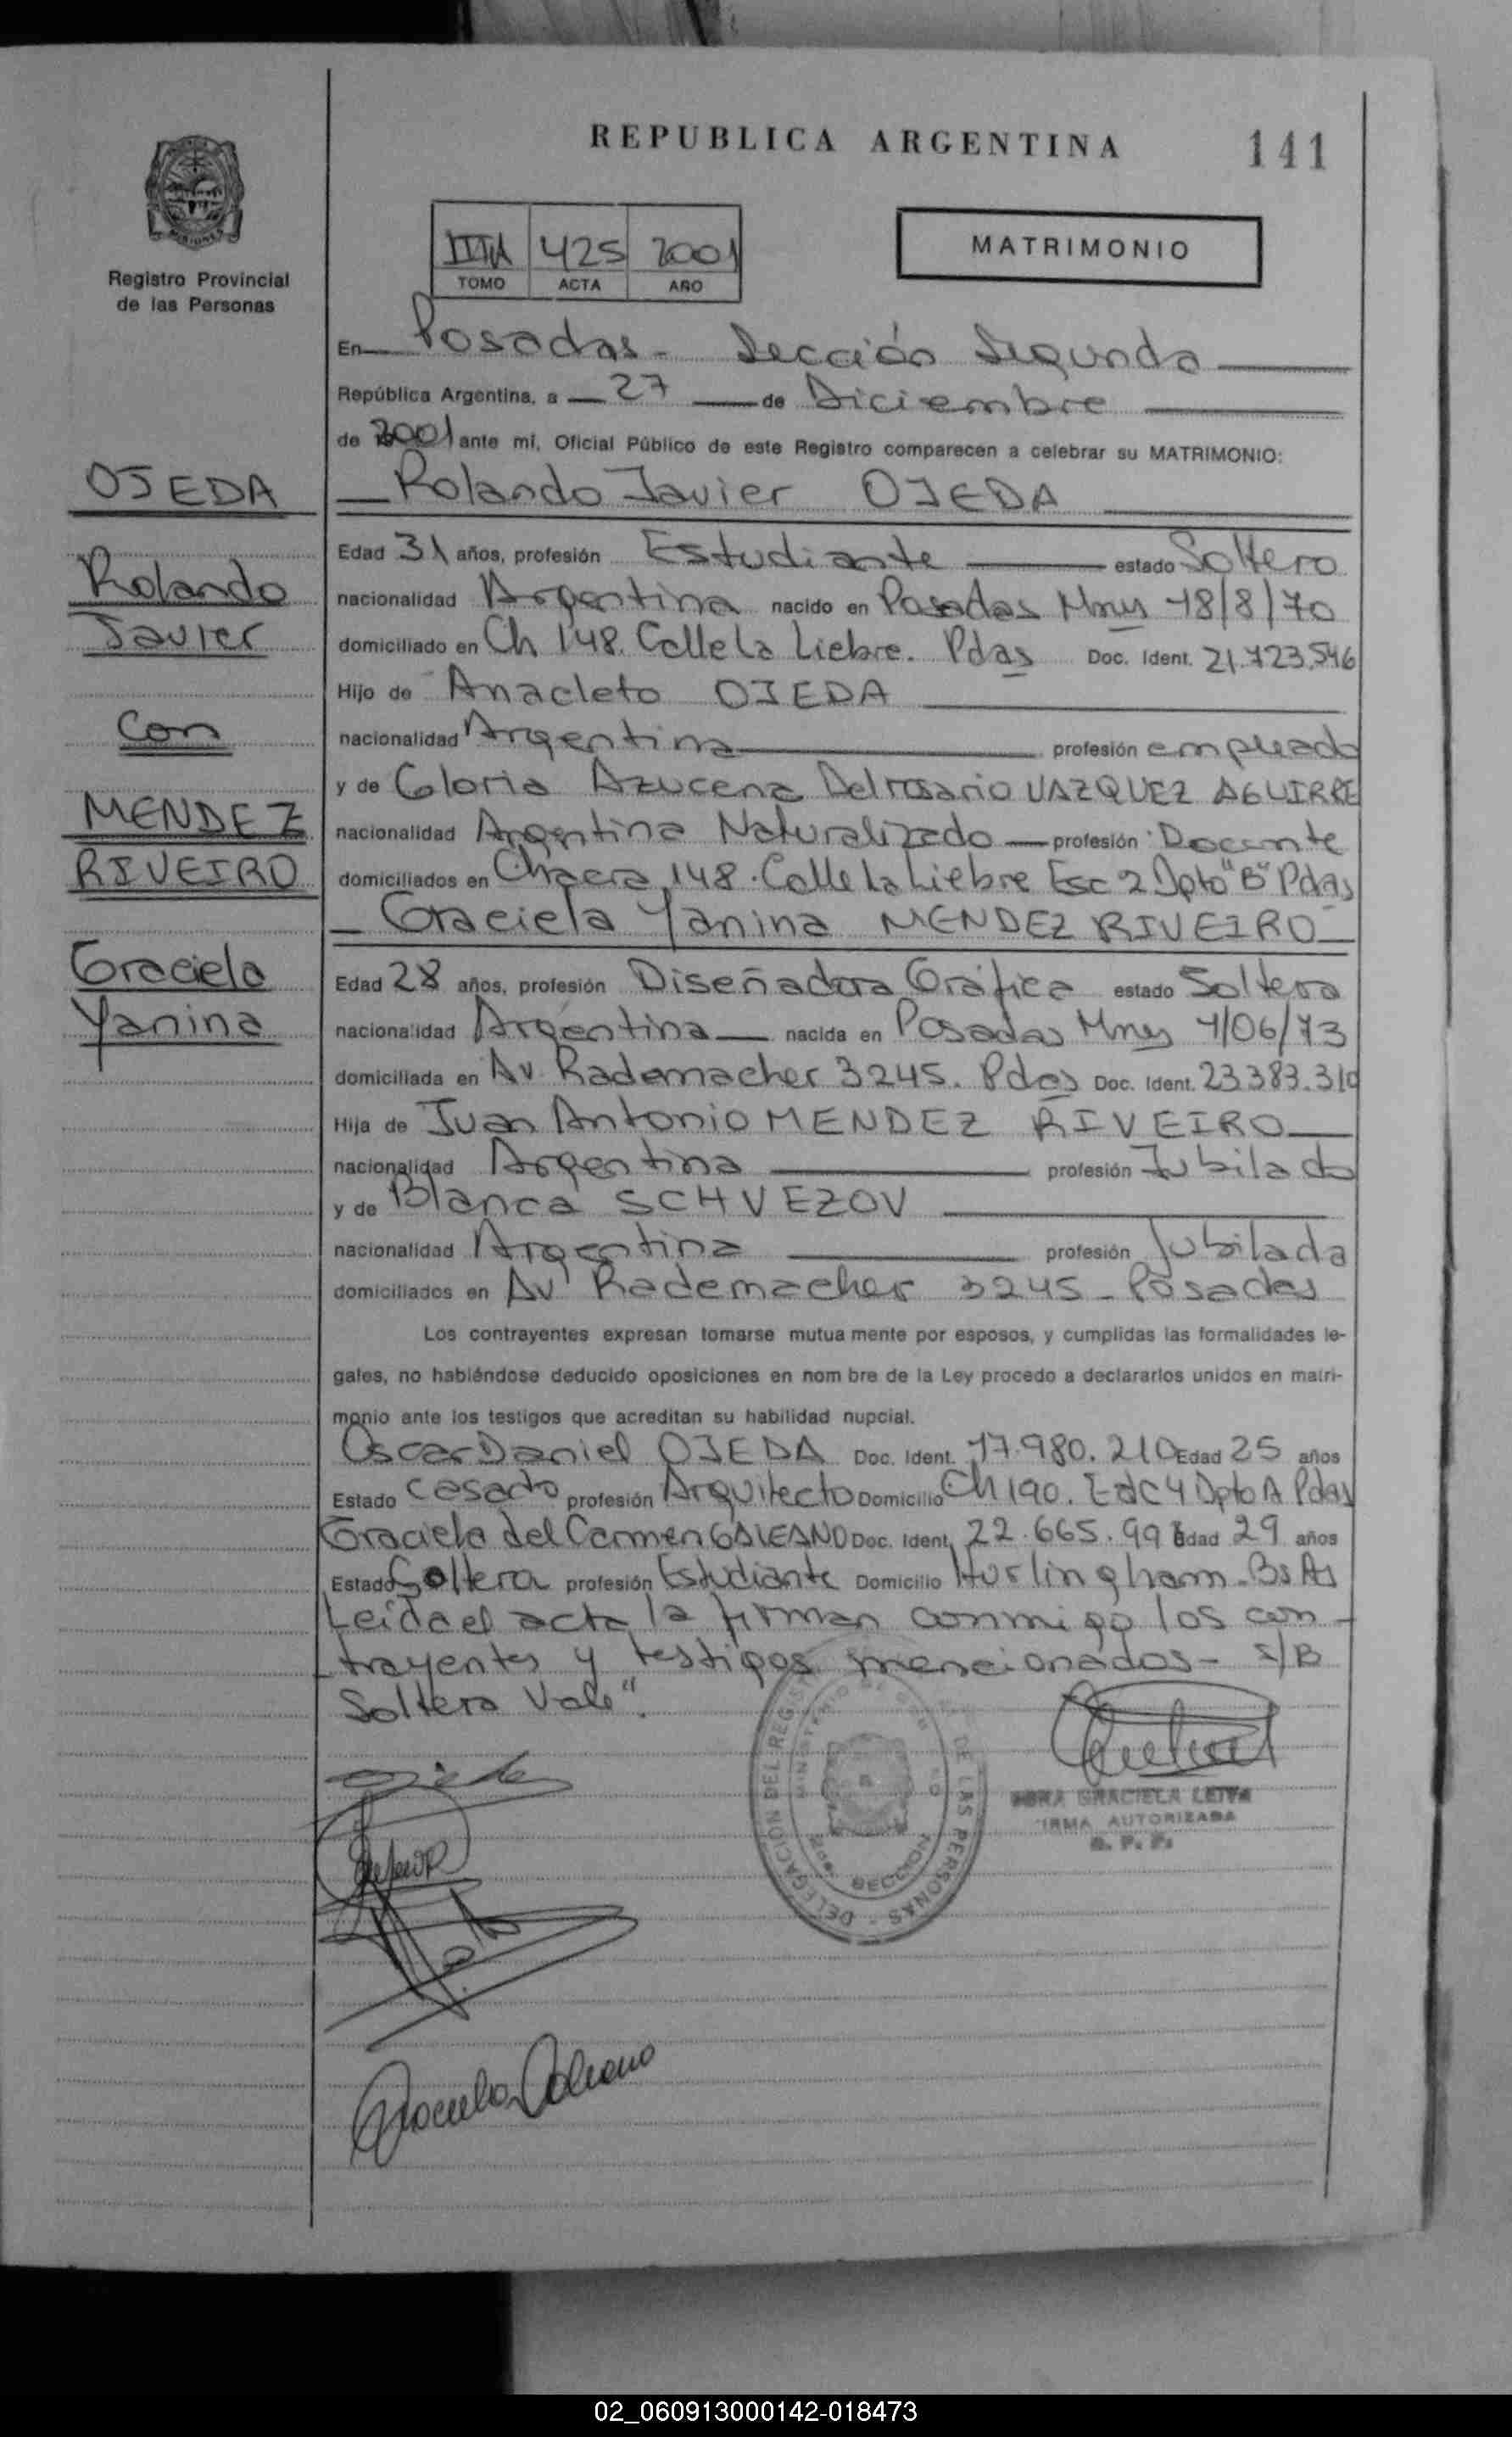 REPUBLICA ARGENTINA
141
MISIONES
Registro Provincial
de las Personas
425 2001
TOMO ACTA AÑO
MATRIMONIO
En Posadas - Sección Segunda
República Argentina, a 27 de Diciembre
de 2001 ante mí, Oficial Público de este Registro comparecen a celebrar su MATRIMONIO:
OJEDA
Rolando
Javier
Con
MENDEZ
RIVEIRO
Graciela
Yanina
Rolando Javier OJEDA
Edad 31 años, profesión Estudiante estado Soltero
nacionalidad Argentina nacido en Posadas Mnes 18/8/70
domiciliado en Ch 148. Calle la Liebre. Pdas Doc. Ident. 21.723.546
Hijo de Anacleto OJEDA
nacionalidad Argentina profesión empleado
y de Gloria Azucena Delrosario VAZQUEZ AGUIRRE
nacionalidad Argentina Naturalizado profesión Docente
domiciliados en Chacra 148. Calle la Liebre Esc 2 Dpto "B" Pdas
Graciela Yanina MENDEZ RIVEIRO
Edad 28 años, profesión Diseñadora Gráfica estado Soltera
nacionalidad Argentina nacida en Posadas Mnes 1/06/73
domiciliada en Av Rademacher 3245. Pdas Doc. Ident. 23.383.310
Hija de Juan Antonio MENDEZ RIVEIRO
nacionalidad Argentina profesión Jubilado
y de Blanca SCHVEZOV
nacionalidad Argentina profesión Jubilada
domiciliados en Av Rademacher 3245 - Posadas
Los contrayentes expresan tomarse mutua mente por esposos, y cumplidas las formalidades le-
gales, no habiéndose deducido oposiciones en nom bre de la Ley procedo a declararlos unidos en matri-
monio ante los testigos que acreditan su habilidad nupcial.
Oscar Daniel OJEDA Doc. Ident. 17.980.210 Edad 25 años
Estado Casado profesión Arquitecto Domicilio Ch 190. Edc 4 Dpto A Pdas
Graciela del Carmen GALEANO Doc. Ident. 22.665.99 Edad 29 años
Estado Soltera profesión Estudiante Domicilio Hurlingham - Bs As
Leida el acta la firman conmigo los con-
trayentes y testigos mencionados - S/B
Soltera Vale".
DELEGACION DEL REGISTRO DE LAS PERSONAS
MINISTERIO DE
2da. SECCION
GRACIELA LEIVA
FIRMA AUTORIZADA
R. P. P.
Graciela Galeano
02_060913000142-018473